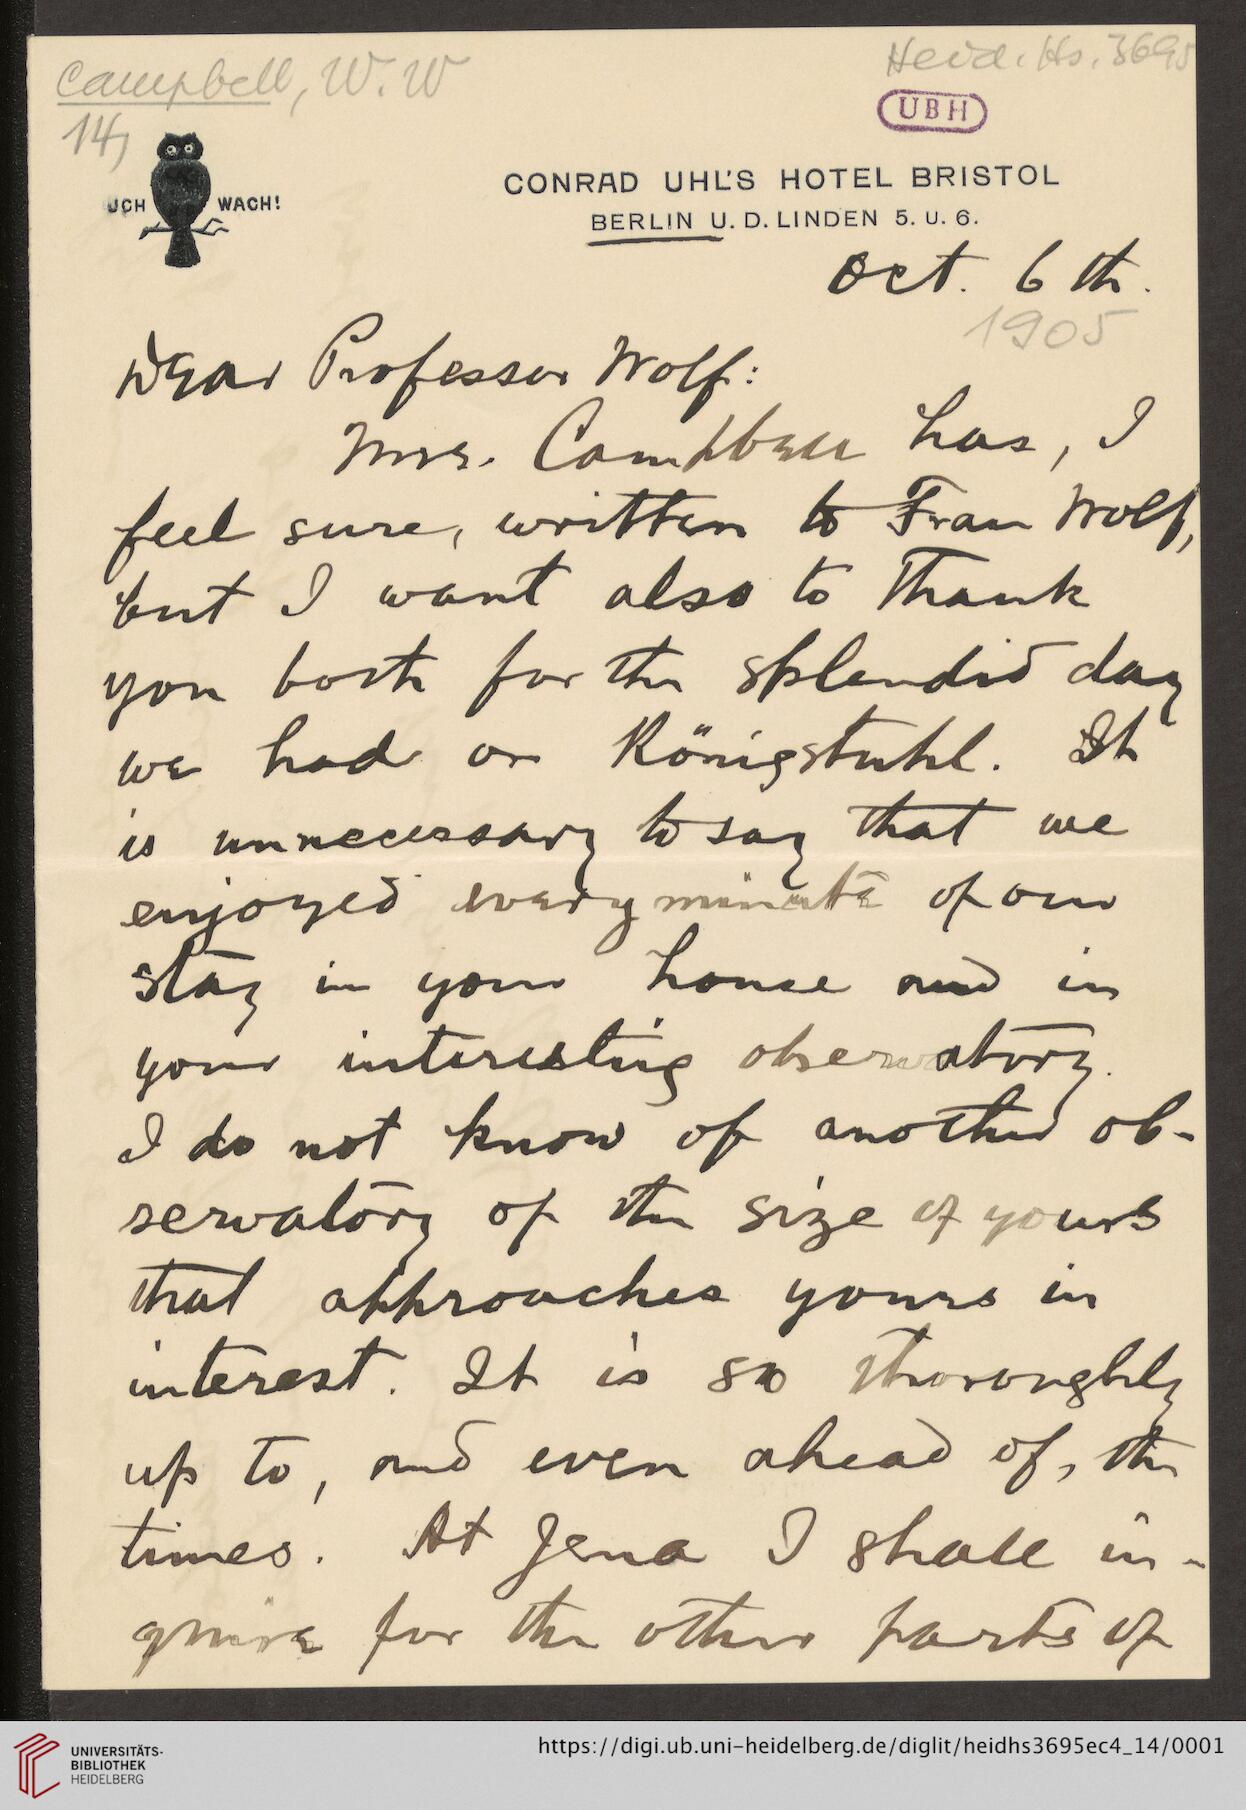 Campbell, W. W
Heid. Hs. 3695
14,
UBH
UCH WACH!
CONRAD UHL'S HOTEL BRISTOL
BERLIN U. D. LINDEN 5. U. 6.
Oct. 6th.
1905
Dear Professor Wolf:
Mrs. Campbell has, I
feel sure, written to Frau Wolf,
but I want also to thank
you both for the splendid day
we had on Königstuhl. It
is unnecessary to say that we
enjoyed every minute of our
stay in your house and in
your interesting observatory.
I do not know of another ob-
servatory of the size of yours
that approaches yours in
interest. It is so thoroughly
up to, and even ahead of, the
times. At Jena I shall in-
quire for the other parts of
UNIVERSITÄTS-
BIBLIOTHEK
HEIDELBERG
https://digi.ub.uni-heidelberg.de/diglit/heidhs3695ec4_14/0001